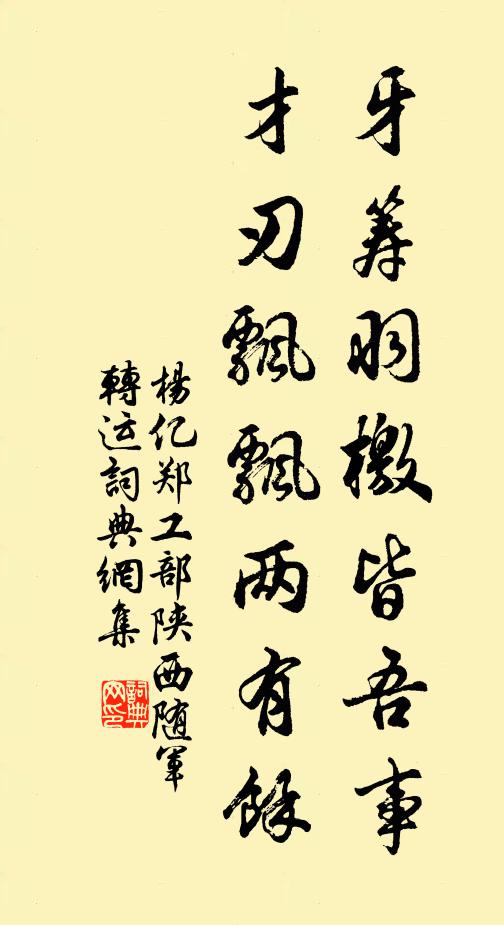 牙筹羽檄皆吾事
才刃飘飘两有馀
杨亿郑工部陕西随军
轉运詞典網集
詞典网印